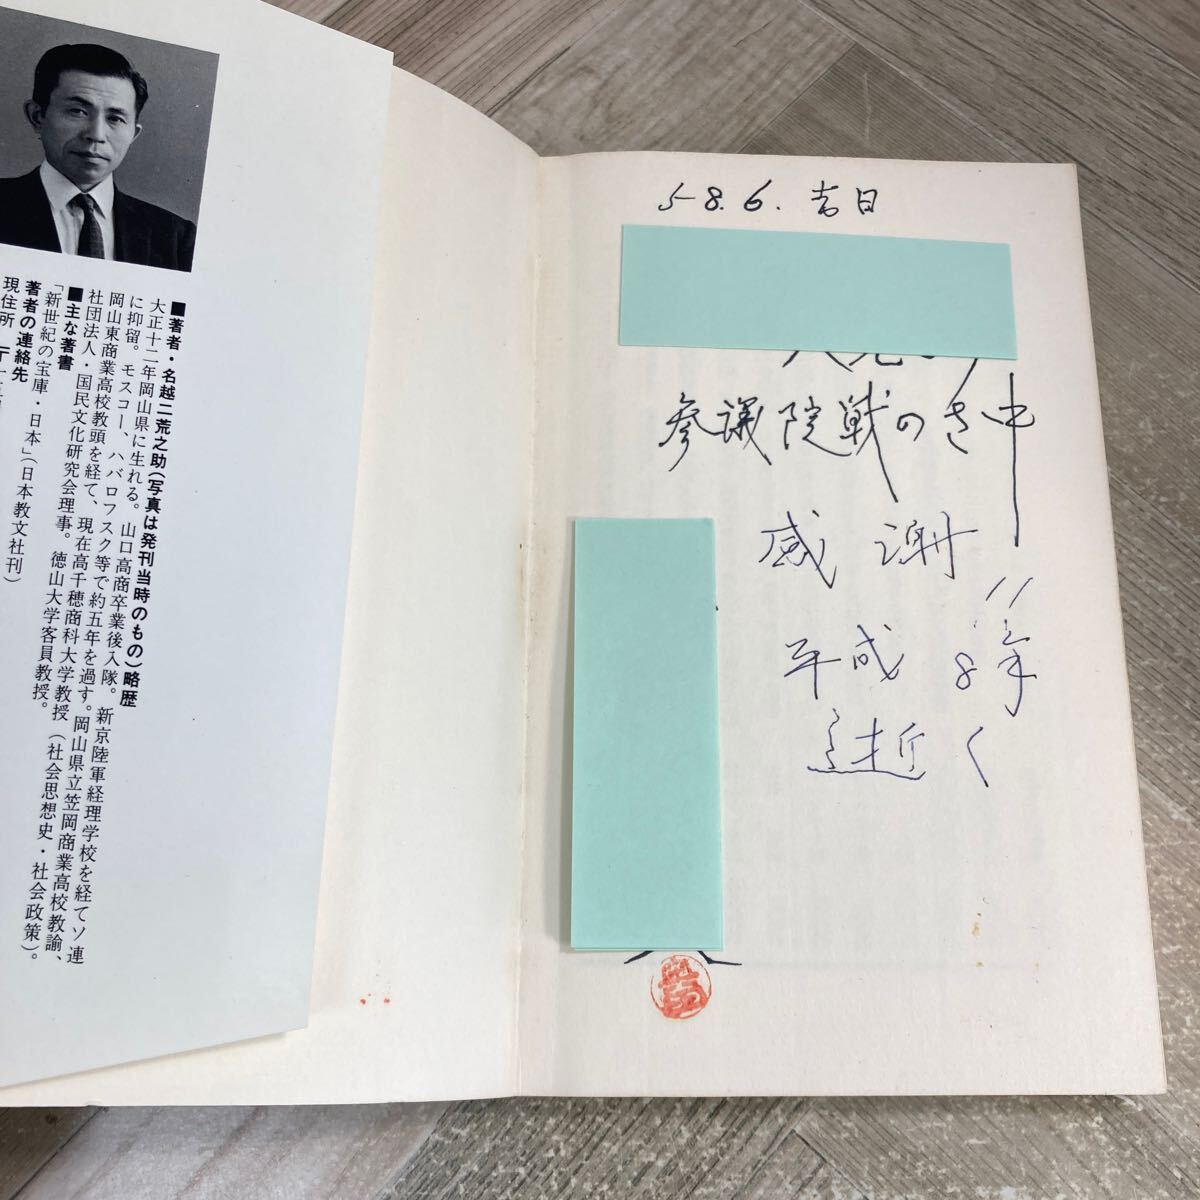 ■著者・名越二荒之助(写真は発刊当時のもの)略歴
大正十二年岡山県に生れる。山口高商卒業後入隊。新京陸軍経理学校を経てソ連
に抑留。モスコー、ハバロフスク等で約五年を過す。岡山県立笠岡商業高校教諭、
岡山東商業高校教頭を経て、現在高千穂商科大学教授(社会思想史・社会政策)。
社団法人・国民文化研究会理事。徳山大学客員教授。
■主な著書
「新世紀の宝庫・日本」(日本教文社刊)
著者の連絡先
現住所
58.6.吉日
参議院戦のさ中
感謝
平成8年
逝く